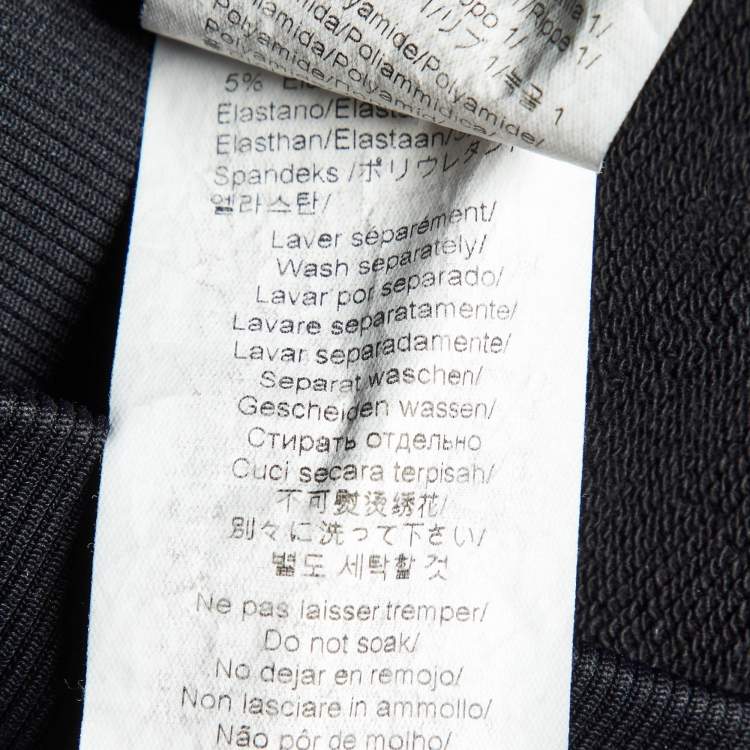 Rippe 1/
ppo 1/
リブ 1/골 1
Polyamide/Polyamide/
Polyamida/Poliammidica/
Polyamide/Polyamide/
5%
Elastano/
Elasthan/Elastaan/
Spandeks /ポリウレタン/
엘라스탄/
Laver séparément/
Wash separately/
Lavar por separado/
Lavare separatamente/
Lavar separadamente/
Separat waschen/
Gescheiden wassen/
Стирать отдельно
Cuci secara terpisah/
不可熨烫绣花/
別々に洗って下さい/
별도 세탁할 것
Ne pas laisser tremper/
Do not soak/
No dejar en remojo/
Non lasciare in ammollo/
Não pôr de molho/